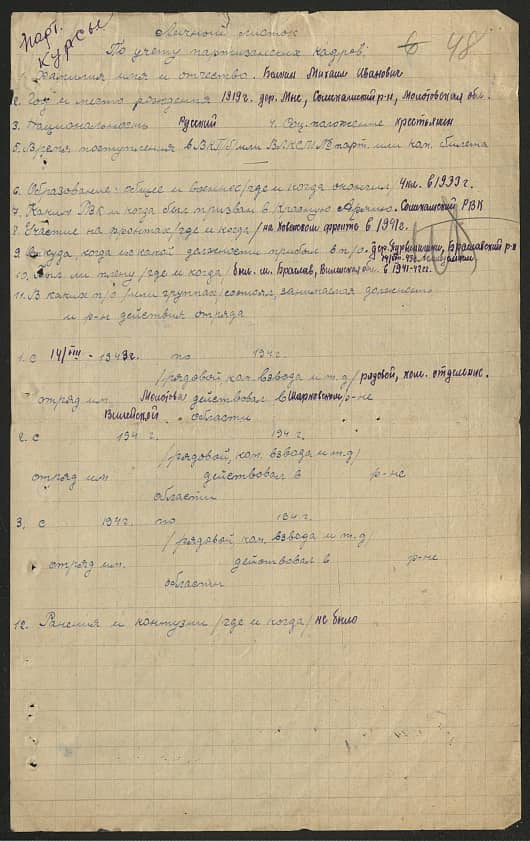 парт.
курсы
Личный листок
По учету партизанских кадров.
6 48
1. Фамилия имя и отчество. Михаил Иванович
2. Год и место рождения 1919г. дер. Соликамский р-н, Молотовская обл.
3. Национальность Русский 4. Соц. положение крестьянин
5. Время поступления в ВКПб или ВЛКСМ № парт. или кан. билета
6. Образование: общее и военное/где и когда окончил/ 4 кл. в 1933г.
7. Каким РВК и когда был призван в Красную Армию. Соликамский РВК
8. Участие на фронтах/где и когда/ на фронте в 1941г.
9. Откуда, когда и какой должности прибыл в п/о. дер. Браславский р-н
14/VIII-43г.
10. Был ли плену/где и когда/ был. м. Браслав, Вилейская обл. в 1941-42гг.
11. В каких п/о /или группах/состоял, занимаемая должность
и р-н действия отряда
1. с 14/VIII - 1943г. по 194 г.
/рядовой, ком. взвода и т.д/ рядовой, ком. отделения.
отряд им. Молотова действовал в Шарковском р-не
Вилейской области
2. с 194 г. 194 г.
/рядовой, ком. взвода и т.д/
отряд им. действовал в р-не
области
3. с 194 г. по 194 г.
/рядовой, ком. взвода и т.д/
отряд им. действовал в р-не
области
12. Ранения и контузии /где и когда/ не было